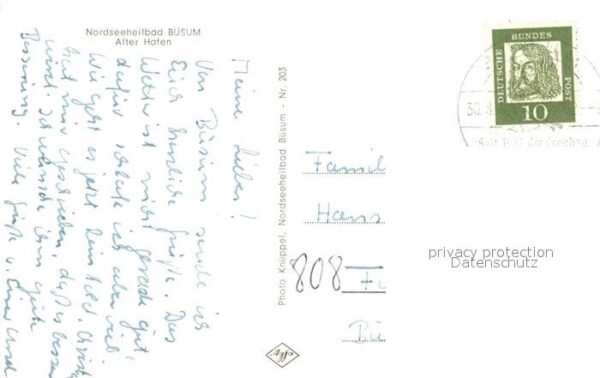 Nordseeheilbad BÜSUM
Alter Hafen
Meine Lieben!
Von Büsum sende ich
Euch herzliche Grüße. Das
Wetter ist nicht gerade gut,
dafür schlafe ich aber viel.
Wie geht es jetzt
hat mir geschrieben, daß es besser
wird. Ich wünsche ihm gute
Besserung. Viele Grüße v. Eurer
Photo Knüppel, Nordseeheilbad Büsum - Nr. 203
Agfa
DEUTSCHE BUNDES POST
10
Seit 1837 Nordseebad
Famil
Hans
808
Bü
privacy protection
Datenschutz